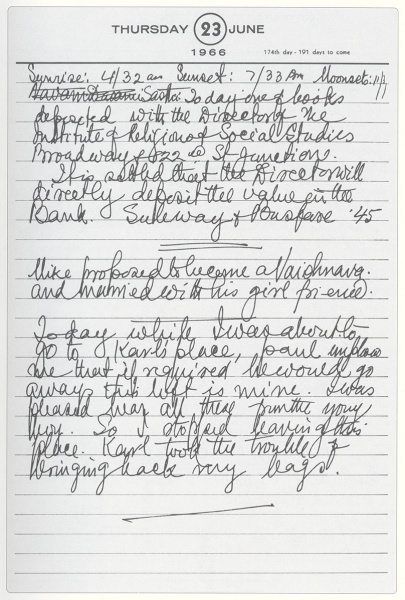 THURSDAY 23 JUNE
1966 174th day - 191 days to come
Sunrise: 4/32 am Sunset: 7/33 Pm Moonset: 11/
Today one of books
deposited with the Director of the
Institute of Religion of Social Studies
Broadway & 122 St Junction.
It is settled that the Director will
directly deposit the value in the
Bank. Subeway & Busfare '45
Mike proposed to become a Vaishnava.
and married with his girl friend.
Today while I was about to
go to Karl's place, paul
me that if required he would go
away this loft is mine. I was
pleased hear all these from the young
boy. So I stopped leaving this
place. Karl took the trouble of
bringing back very bags.